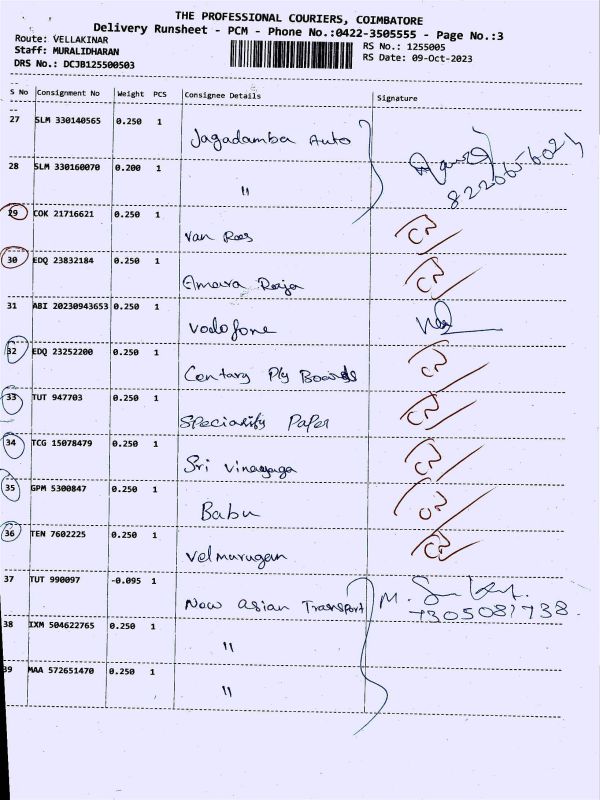 THE PROFESSIONAL COURIERS, COIMBATORE
Delivery Runsheet - PCM - Phone No.:0422-3505555 - Page No.:3
Route: VELLAKINAR
Staff: MURALIDHARAN
DRS No.: DCJB125500503
RS No.: 1255005
RS Date: 09-Oct-2023
S No Consignment No Weight PCS Consignee Details Signature
27 SLM 330140565 0.250 1 Jagadamba Auto
28 SLM 330160070 0.200 1 "
29 COK 21716621 0.250 1 Van Rees
30 EDQ 23832184 0.250 1 Amara Raja
31 ABI 20230943653 0.250 1 Vodofone
32 EDQ 23252200 0.250 1 Century Ply Boards
33 TUT 947703 0.250 1 Speciality Paper
34 TCG 15078479 0.250 1 Sri Vinayaga
35 GPM 5300847 0.250 1 Babu
36 TEN 7602225 0.250 1 Velmurugan
37 TUT 990097 -0.095 1 New Asian Transport M. 7305081738
38 IXM 504622765 0.250 1 "
39 MAA 572651470 0.250 1 "